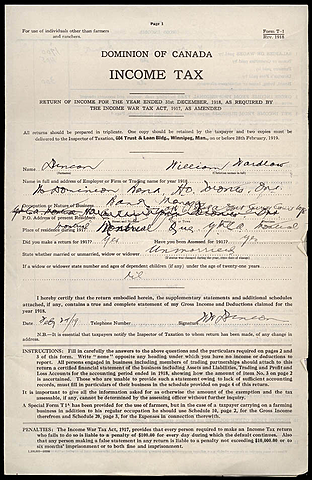 Page 1
For use of individuals other than farmers and ranchers.
Form T-1
Rev. 1918
DOMINION OF CANADA
INCOME TAX
RETURN OF INCOME FOR THE YEAR ENDED 31st DECEMBER, 1918, AS REQUIRED BY
THE INCOME WAR TAX ACT, 1917, AS AMENDED
All returns should be prepared in triplicate. One copy should be retained by the taxpayer and two copies must be
delivered to the Inspector of Taxation, 604 Trust & Loan Bldg., Winnipeg, Man., on or before 28th February, 1919.
Name Duncan William Wardlaw
Name in full and address of Employer or Firm or Trading name for year 1918
Occupation or Nature of Business
P.O. Address of present Residence
Place of residence during 1917 Montreal Que.
Did you make a return for 1917? Yes Have you been Assessed for 1917? Yes
State whether married or unmarried, widow or widower Unmarried
If a widow or widower state number and age of dependent children (if any) under the age of twenty-one years
nil
I hereby certify that the return embodied herein, the supplementary statements and additional schedules
attached, if any, contains a true and complete statement of my Gross Income and Deductions claimed for the
year 1918.
Date Telephone Number Signature Duncan
N.B.—It is essential that taxpayers notify the Inspector of Taxation to whom return has been made, of any change in
address.
INSTRUCTIONS: Fill in carefully the answers to the above questions and the particulars required on pages 2 and
3 of this form. Write " none " opposite any heading under which you have no income or deductions to
report. All persons engaged in business including members of trading partnerships should attach to this
return a certified financial statement of the business including Assets and Liabilities, Trading and Profit and
Loss Accounts for the accounting period ended in 1918, showing how the amount of Item No. 3 on page 2
is ascertained. Those who are unable to provide such a statement owing to lack of sufficient accounting
records, must fill in particulars of their business in the schedule provided on page 4 of this return.
It is important to give all the information asked for as the amount of the exemption and the tax
assessable, if any, cannot be determined by the assessing officer without further inquiry.
A Special Form T 1A has been provided for the use of farmers, but in the case of a taxpayer carrying on a farming
business in addition to his regular occupation he should use Schedule 10, page 2, for the Gross Income
therefrom and Schedule 20, page 3, for the Expenses in connection therewith.
PENALTIES: The Income War Tax Act, 1917, provides that every person required to make an Income Tax return
who fails to do so is liable to a penalty of $100.00 for every day during which the default continues. Also
that any person making a false statement in his return is liable to a penalty not exceeding $10,000.00 or to
six months' imprisonment or to both fine and imprisonment.